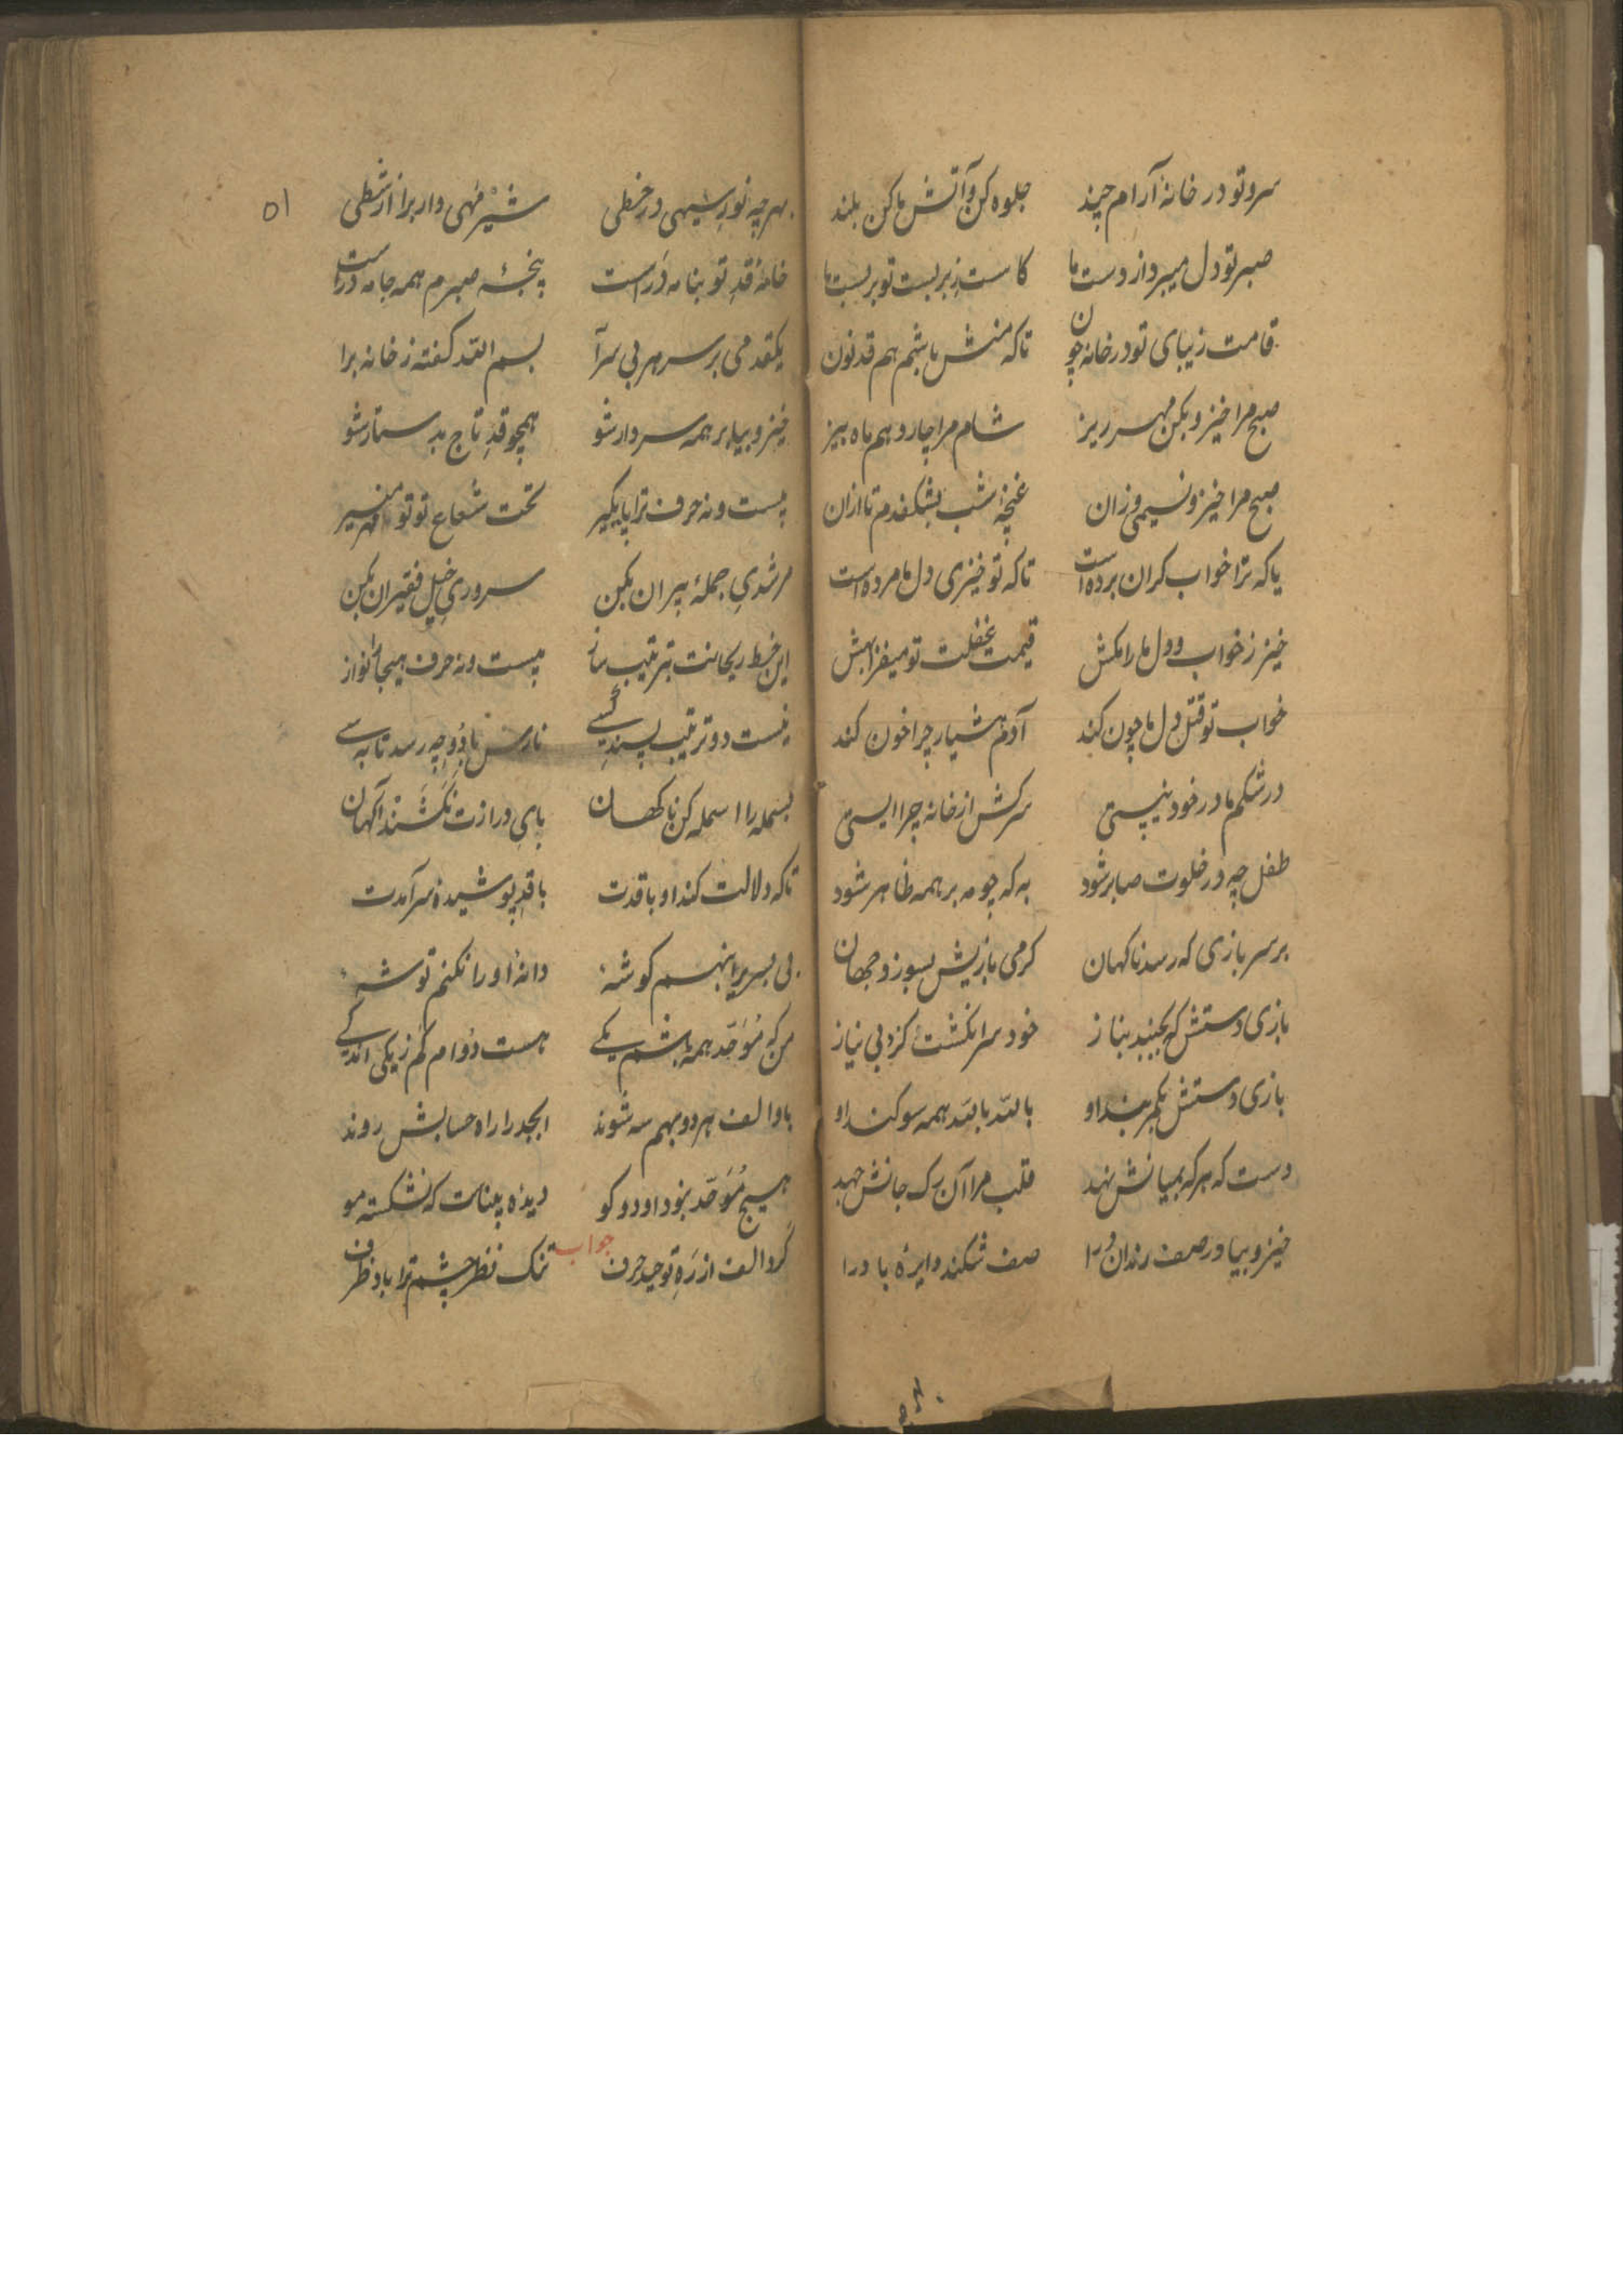 سرو تو در خانهٔ آرام چند جلوه کن و آتش ما کن بلند
صبر تو دل میبرد از دست ما کاست زبر بست تو بر بست ما
قامت زیبای تو در خانه چون تا که منش باشم هم قد نون
صبح مرا خیز و بکن مهر ریز شام مرا چارو هم ماه بیز
صبح مرا خیز و نسیمی وزان غنچهٔ شب بشکفدم تا ازان
یا که ترا خواب کران برده است تا که تو خیزی دل ما مرده است
خیز ز خواب و دل ما را مکش قیمت غفلت تو میفزا بهش
خواب تو قتل دل ما چون کند آدم هشیار چرا خون کند
در شکم مادر خود نیستی سرکش از خانه چرا ایستی
طفل چه در خلوت صابر شود به که چو مه بر همه ظاهر شود
بر سر بازی که رسد ناکهان کرمی بازیش بسوزد جهان
بازی دستش که بجنبد بناز خود سر انکشت کزد بی نیاز
بازی دستش بکمر بند او بالله بالله همه سوکند او
دست که هر که بمیانش نهد قلب مرا آن رک جانش جهد
خیز و بیا در صف رندان درا صف شکند دایرهٔ با درا
۵۱
بهر چه نورسیهی در خطی شیر مهی وار برا از شطی
خامهٔ قد تو بنامه دراست پنجهٔ صبرم همه جامه دراست
یکقدمی بر سر هر بی سرآ بسم الله کفته ز خانه برا
خیز و بیا بر همه سردار شو همچو قد تاج بدستار شو
بیست و نه حرف ترا پایکیر تحت شعاع تو تو مهر منیر
مرشدی جملهٔ پیران بکن سروری خیل فقیران بکن
این خط ریحانت بترتیب ساز بیست و نه حرف هیجائی نواز
نیست دو ترتیب پسند کسی نارس با دو چه رسد تا به سی
بسمله را اسمله کن ناکهان پای درازت نکشند آکهان
تا که دلالت کند او با قدت با قد پوشیده سر آمدت
بی بسری را بنهم کوشهٔ دانهٔ او را نکنم توشهٔ
من که موحد همه باشم یکی هست دوام کم ز یکی اندکی
با و الف هر دو بهم سه شوند ابجد را راه حسابش روند
هیچ موحد نبود او دو کو دیده پینات که نشکسته مو
جواب
کرد الف از ره توحید حرف تنک نظر چشم ترا باد ظرف